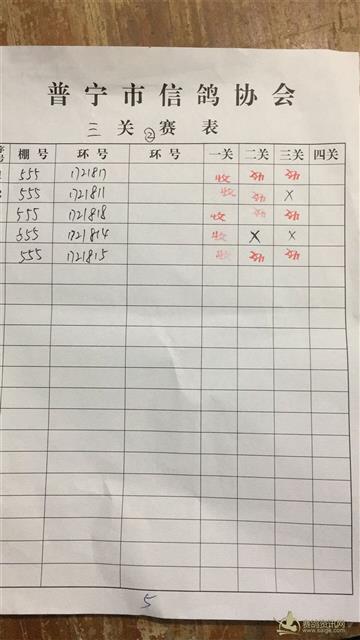 普宁市信鸽协会
三关②赛表
序号 棚号 环号 环号 一关 二关 三关 四关
555 1721817 收
555 1721811 收 X
555 1721818 收
555 1721814 收 X X
555 1721815 收
5
赛鸽资讯网
www.saige.com